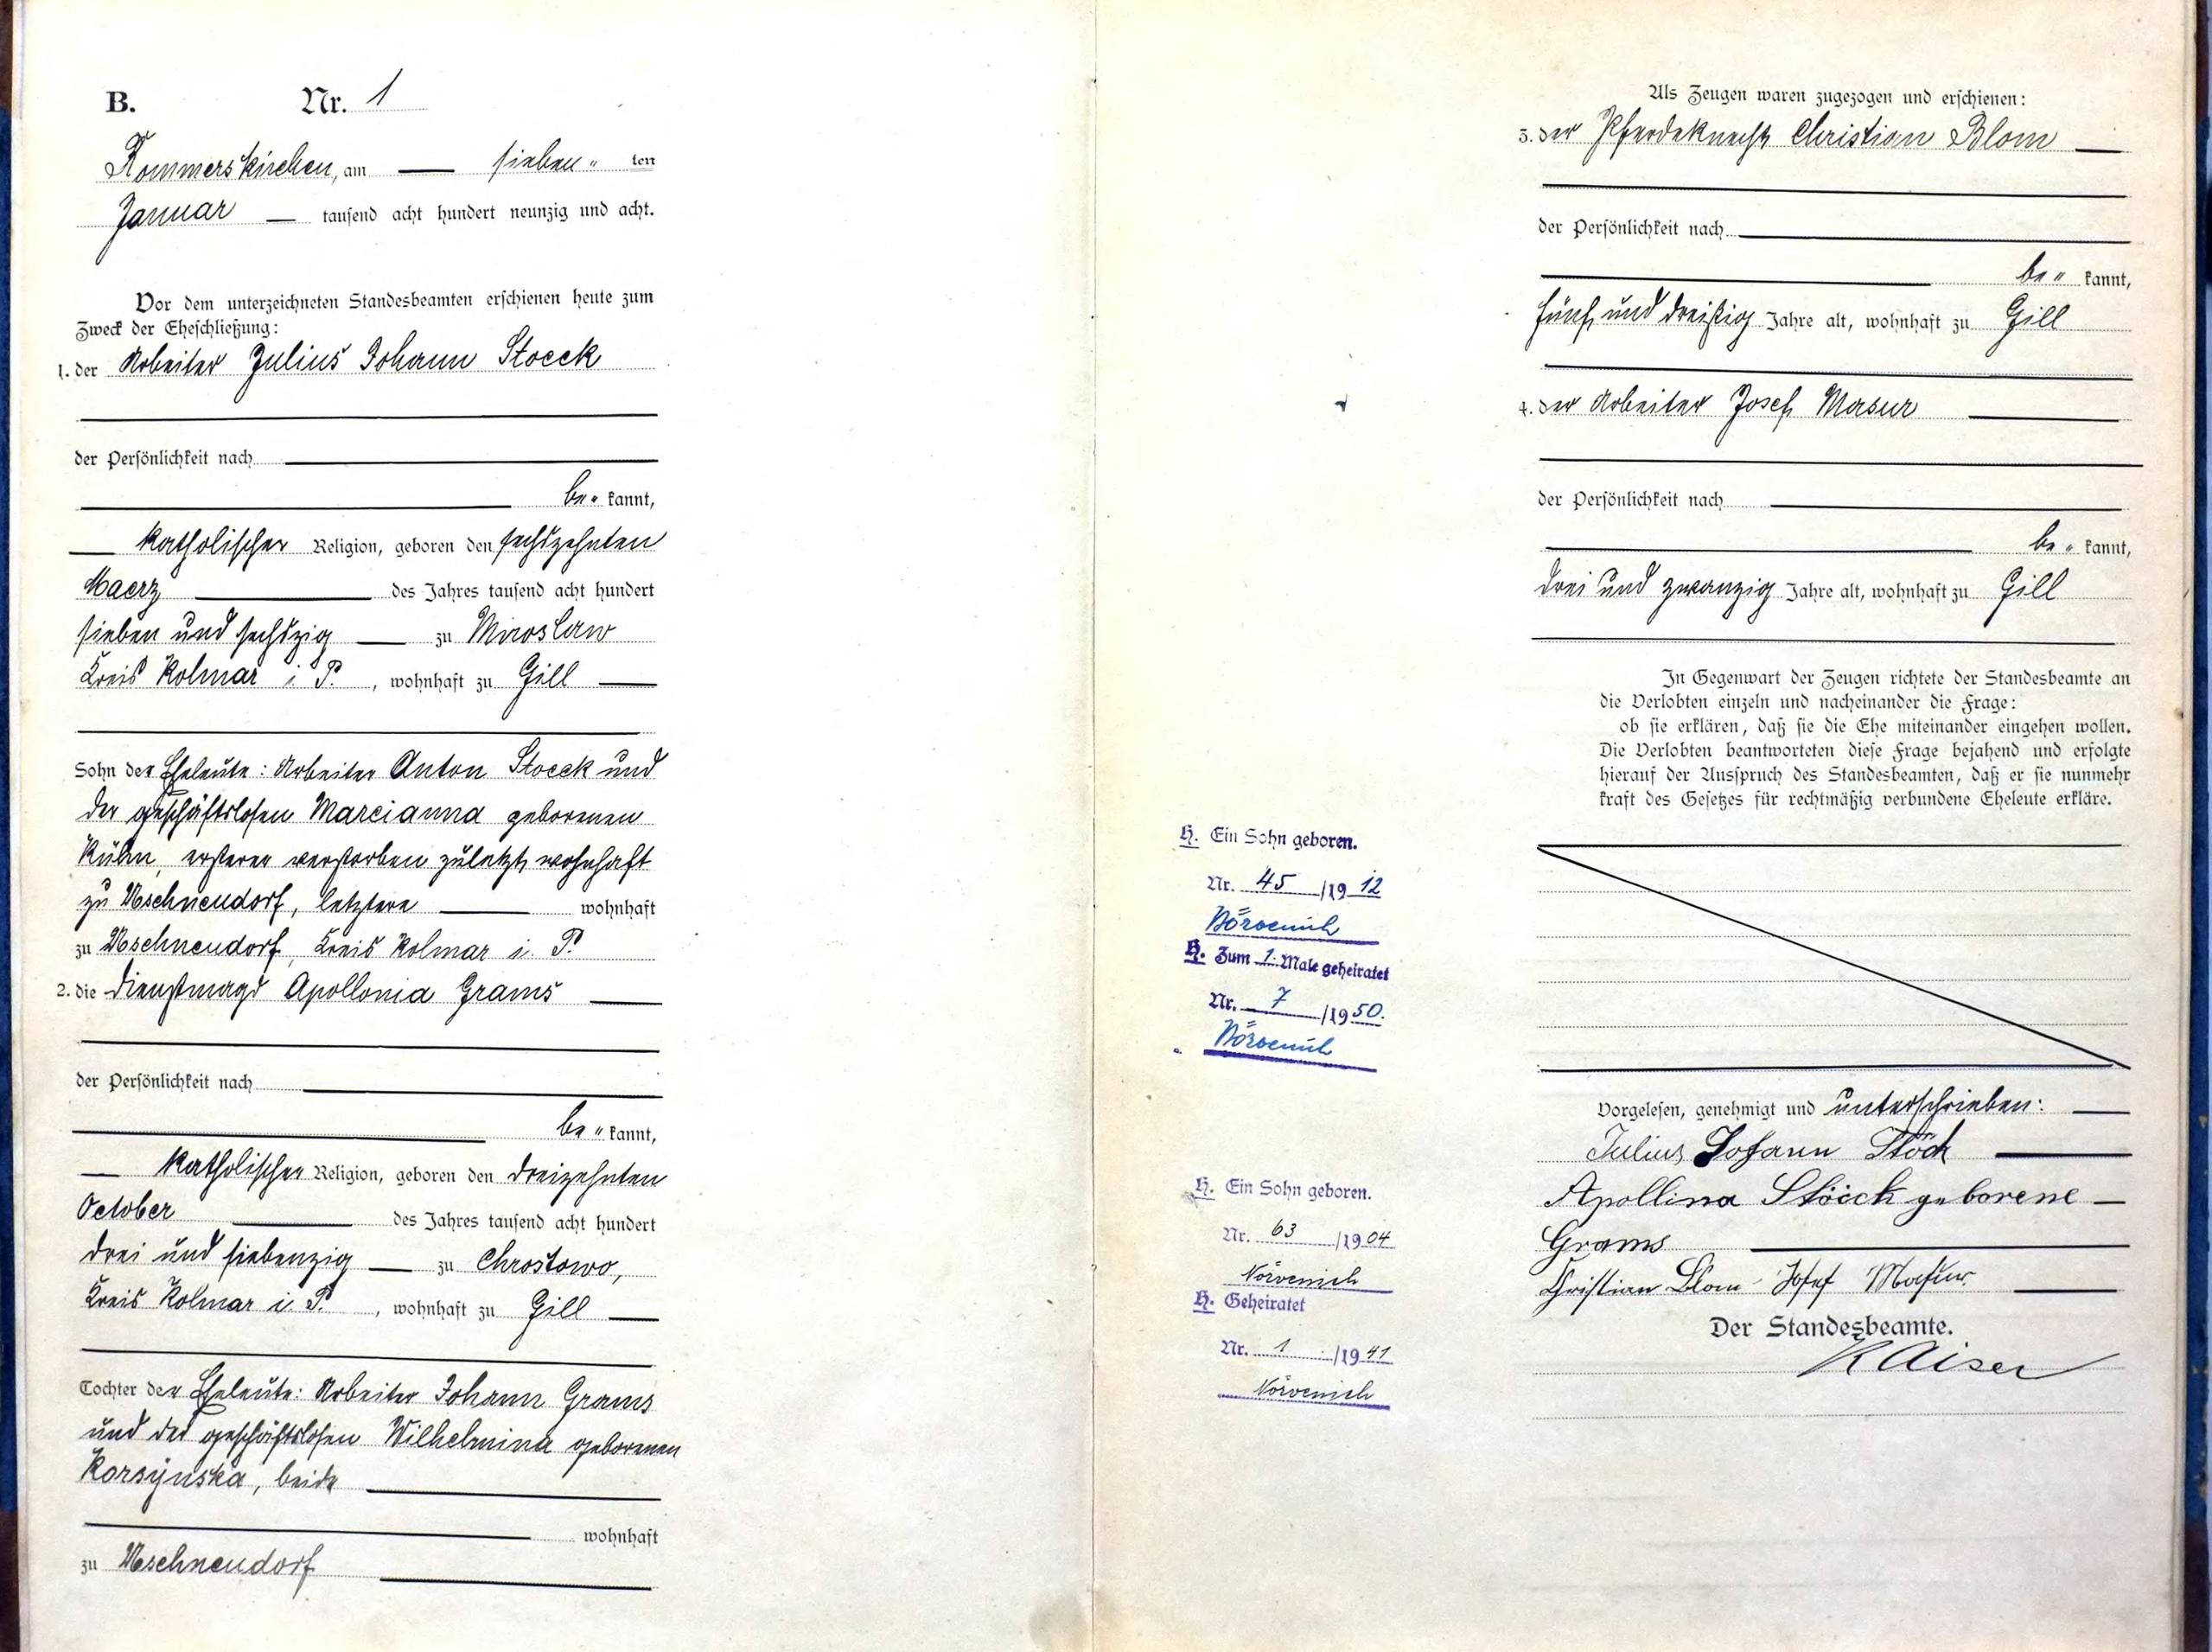 B. Nr. 1
Rommerskirchen, am sieben- ten
Januar tausend acht hundert neunzig und acht.
Vor dem unterzeichneten Standesbeamten erschienen heute zum
Zweck der Eheschließung:
1. der Arbeiter Julius Johann Stoeck
der Persönlichkeit nach
be- kannt,
katholischer Religion, geboren den sechszehnten
Maerz des Jahres tausend acht hundert
sieben und sechszig zu Miroslaw
Kreis Kolmar i. P., wohnhaft zu Gill
Sohn der Eheleute: Arbeiter Anton Stoeck und
der geschäftslosen Marcianna geborenen
Kühn, ersterer verstorben zuletzt wohnhaft
zu Uschneudorf, letztere wohnhaft
zu Uschneudorf, Kreis Kolmar i. P.
2. die Dienstmagd Apollonia Grams
der Persönlichkeit nach
be- kannt,
katholischer Religion, geboren den dreizehnten
October des Jahres tausend acht hundert
drei und siebenzig zu Chrostowo,
Kreis Kolmar i. P., wohnhaft zu Gill
Tochter der Eheleute: Arbeiter Johann Grams
und der geschäftslosen Wilhelmina geborenen
Korsynska, beide
wohnhaft
zu Uschneudorf
Als Zeugen waren zugezogen und erschienen:
3. der Pferdeknecht Christian Blom
der Persönlichkeit nach
be- kannt,
fünf und dreißig Jahre alt, wohnhaft zu Gill
4. der Arbeiter Josef Masur
der Persönlichkeit nach
be- kannt,
drei und zwanzig Jahre alt, wohnhaft zu Gill
In Gegenwart der Zeugen richtete der Standesbeamte an
die Verlobten einzeln und nacheinander die Frage:
ob sie erklären, daß sie die Ehe miteinander eingehen wollen.
Die Verlobten beantworteten diese Frage bejahend und erfolgte
hierauf der Ausspruch des Standesbeamten, daß er sie nunmehr
kraft des Gesetzes für rechtmäßig verbundene Eheleute erkläre.
H. Ein Sohn geboren.
Nr. 45 /19 12
Nörvenich
H. Zum 1. Male geheiratet
Nr. 7 /19 50.
Nörvenich
H. Ein Sohn geboren.
Nr. 63 /19 04
Nörvenich
H. Geheiratet
Nr. 1 /19 41
Nörvenich
Vorgelesen, genehmigt und unterschrieben:
Julius Johann Stöck
Apollina Stöick geborene
Grams
Christian Blom Josef Masur
Der Standesbeamte.
Kaiser